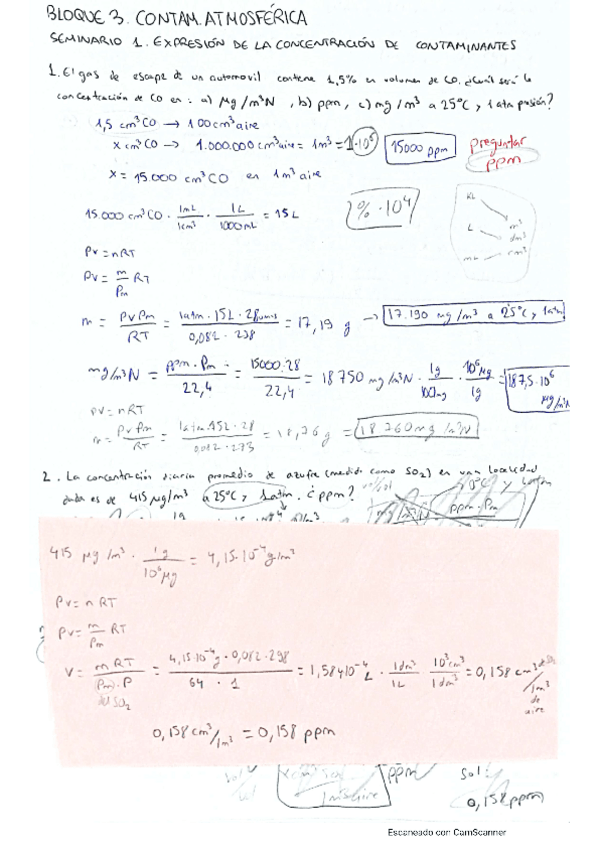 BLOQUE 3. CONTAM. ATMOSFÉRICA
SEMINARIO 1. EXPRESIÓN DE LA CONCENTRACIÓN DE CONTAMINANTES
1. El gas de escape de un automovil contiene 1,5% en volumen de CO. ¿Cuál será la
concentración de CO en: a) µg/m³N, b) ppm, c) mg/m³ a 25ºC y 1 atm presión?
1,5 cm³ CO → 100 cm³ aire
x cm³ CO → 1.000.000 cm³ aire = 1m³ = 1·10⁶
15000 ppm
preguntar
ppm
x = 15.000 cm³ CO en 1 m³ aire
15.000 cm³ CO · 1mL/1cm³ · 1L/1000mL = 15L
% · 10⁴
KL
L
mL
m³
dm³
cm³
PV = nRT
PV = m/Pm RT
m = PVPm/RT = 1atm · 15L · 28/0,082 · 298 = 17,19 g → 17.190 mg/m³ a 25ºC y 1atm
mg/m³N = ppm · Pm/22,4 = 15000·28/22,4 = 18750 mg/m³N · 1g · 10⁶µg/1g = 187,5·10⁶
µg/m³N
PV = nRT
m = PVPm/RT = 1atm·15L·28/0,082·273 = 18,76 g = 18760 mg/m³N
2. La concentración diaria promedio de azufre (medido como SO₂) en una localidad
dada es de 415 µg/m³ a 25ºC y 1 atm. ¿ppm?
415 µg/m³ · 1g/10⁶µg = 4,15·10⁻⁴ g/m³
PV = nRT
PV = m/Pm RT
V = mRT/Pm·P = 4,15·10⁻⁴g·0,082·298/64·1 = 1,584·10⁻⁴ L · 1dm³/1L · 10³cm³/1dm³ = 0,158 cm³ de SO₂/1m³ de aire
del SO₂
0,158 cm³/1m³ = 0,158 ppm
ppm
sol
0,158 ppm
Escaneado con CamScanner